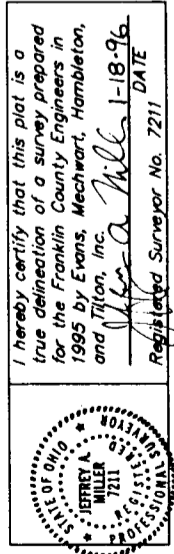 I hereby certify that this plat is a
true delineation of a survey prepared
for the Franklin County Engineers in
1995 by Evans, Mechwart, Hambleton,
and Tilton, Inc.
1-18-96
DATE
Registered Surveyor No. 7211
STATE OF OHIO
JEFFREY A.
MILLER
7211
REGISTERED
PROFESSIONAL SURVEYOR